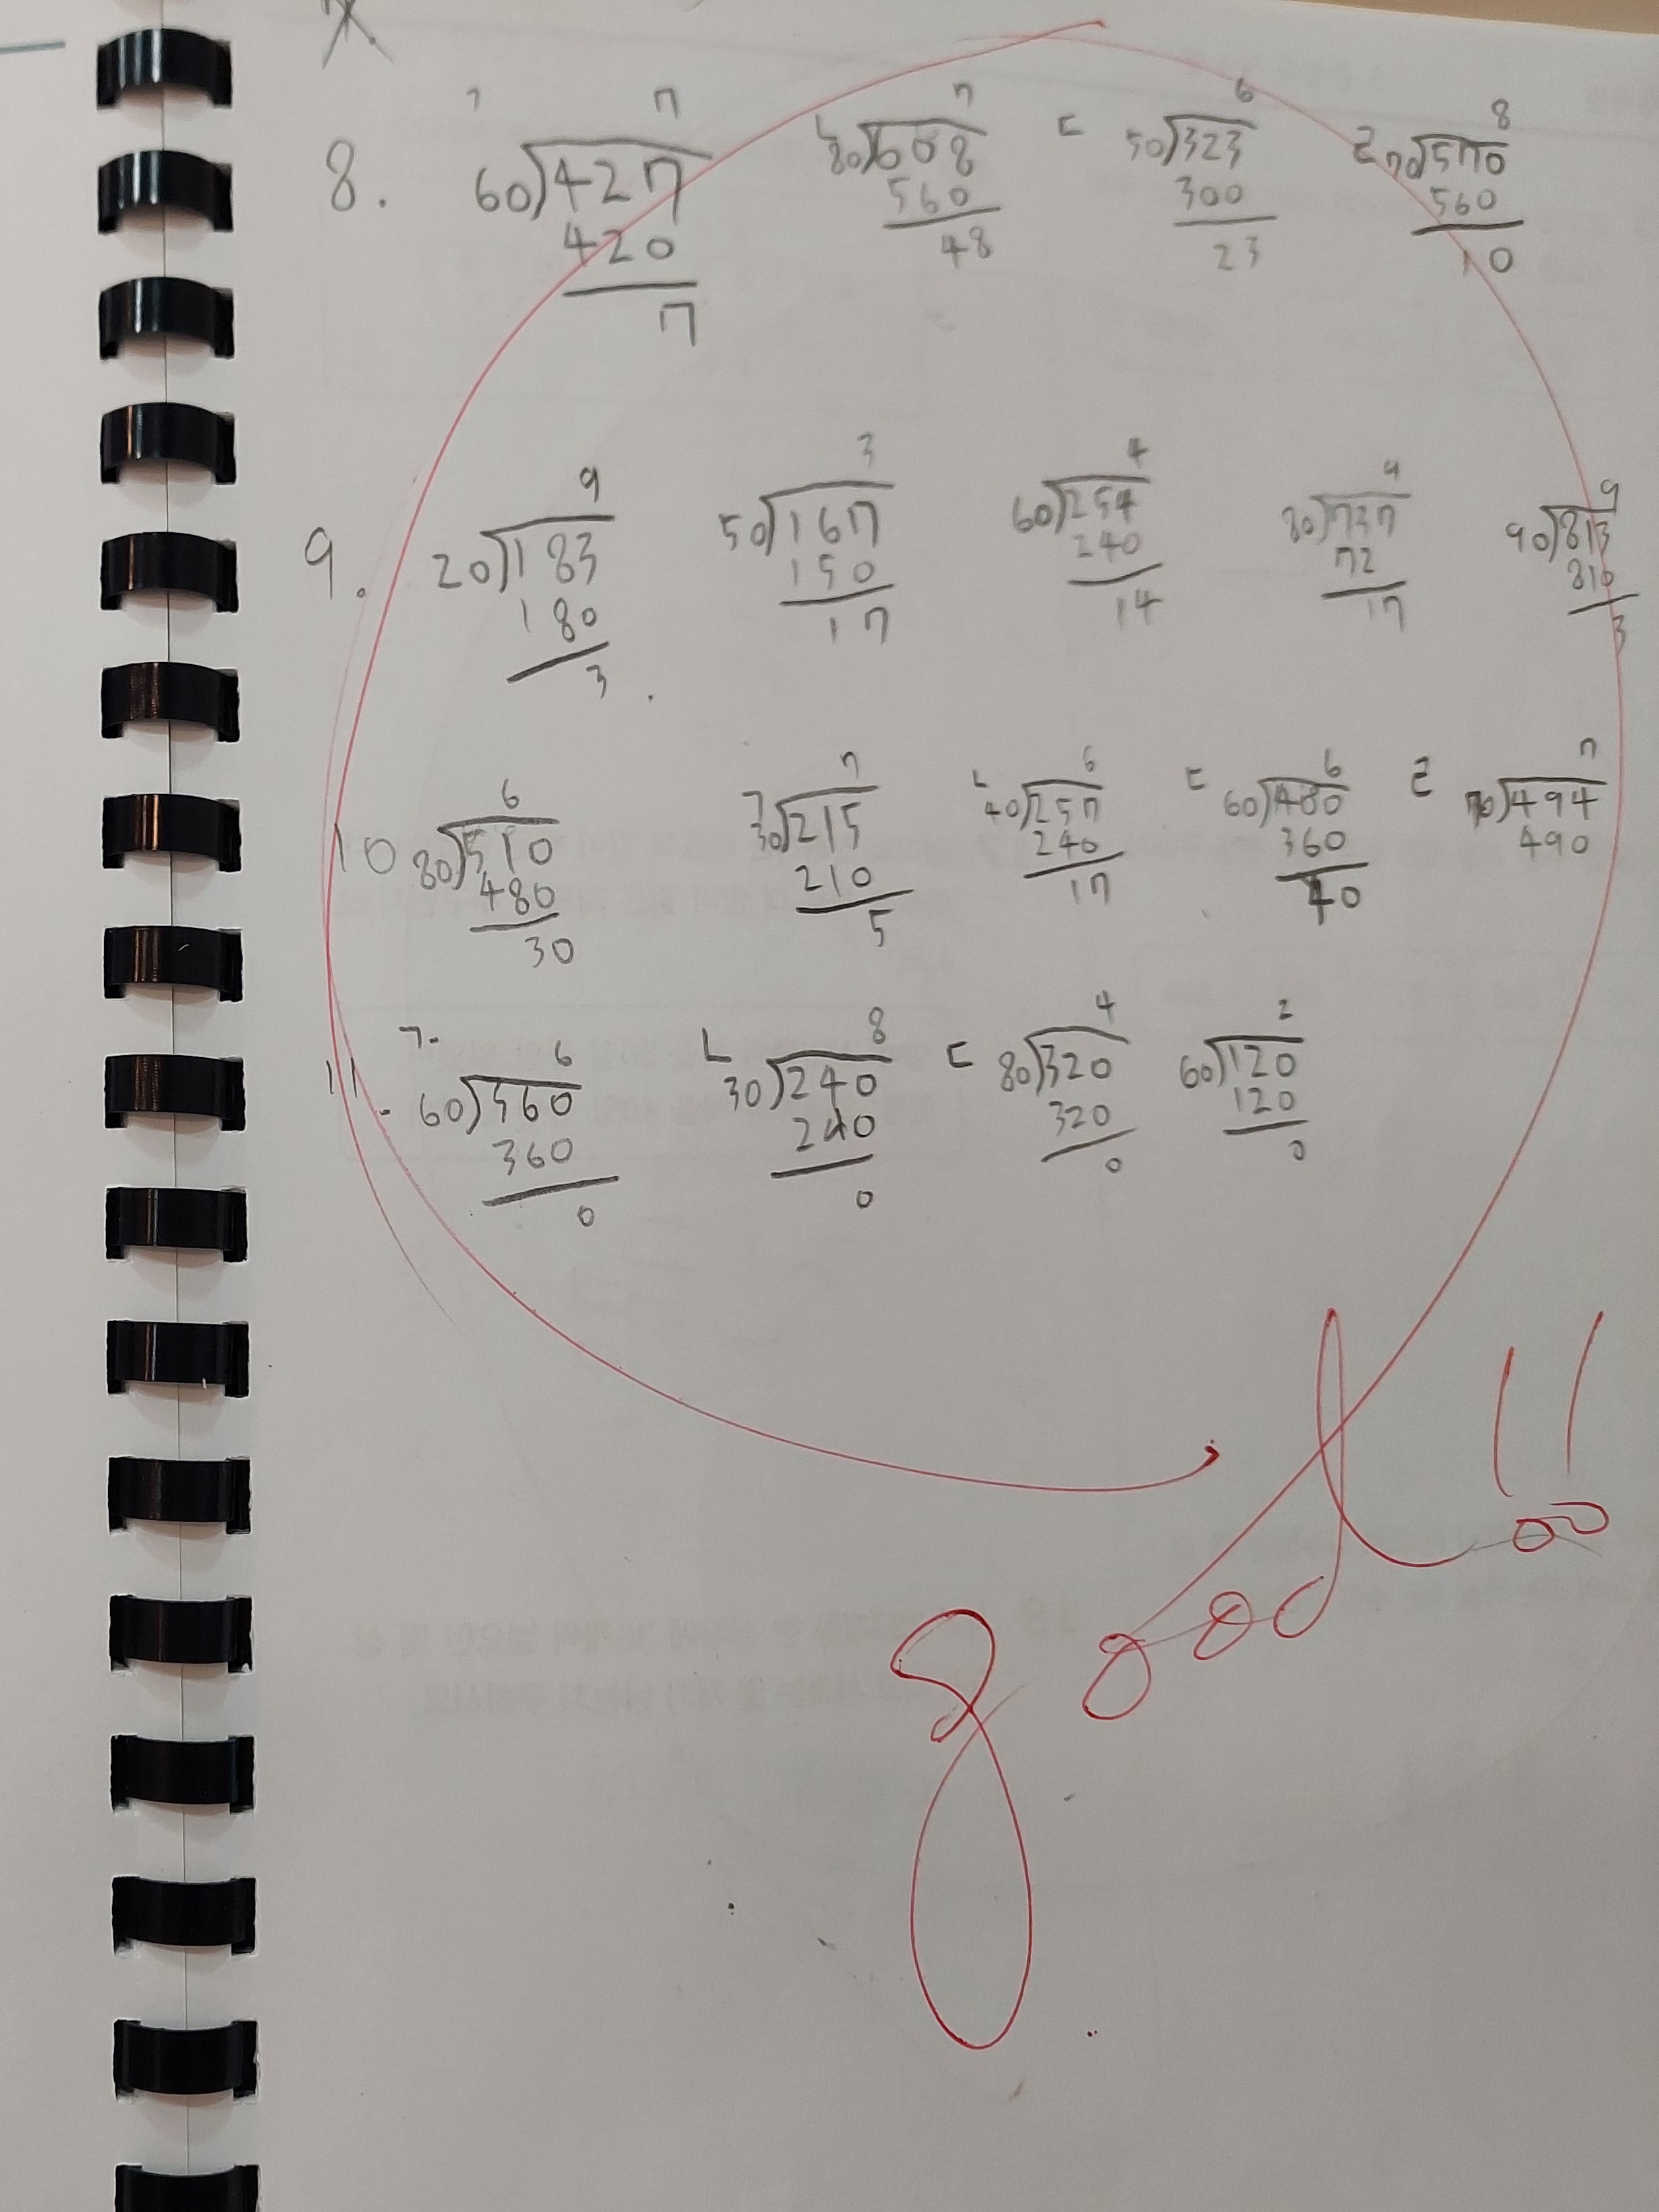 ㄱ 7 7 6 8
8. 60)427 ㄴ 80)608 ㄷ 50)323 ㄹ 70)570
420 560 300 560
7 48 23 10
9 3 4 9 9
9. 20)183 50)167 60)254 80)737 90)813
180 150 240 72 810
3 17 14 17 3
6 7 6 6 7
10 80)510 ㄱ 30)215 ㄴ 40)257 ㄷ 60)400 ㄹ 70)494
480 210 240 360 490
30 5 17 40
ㄱ. 6 ㄴ 8 ㄷ 4 2
11. 60)360 30)240 80)320 60)120
360 240 320 120
0 0 0 0
good!!